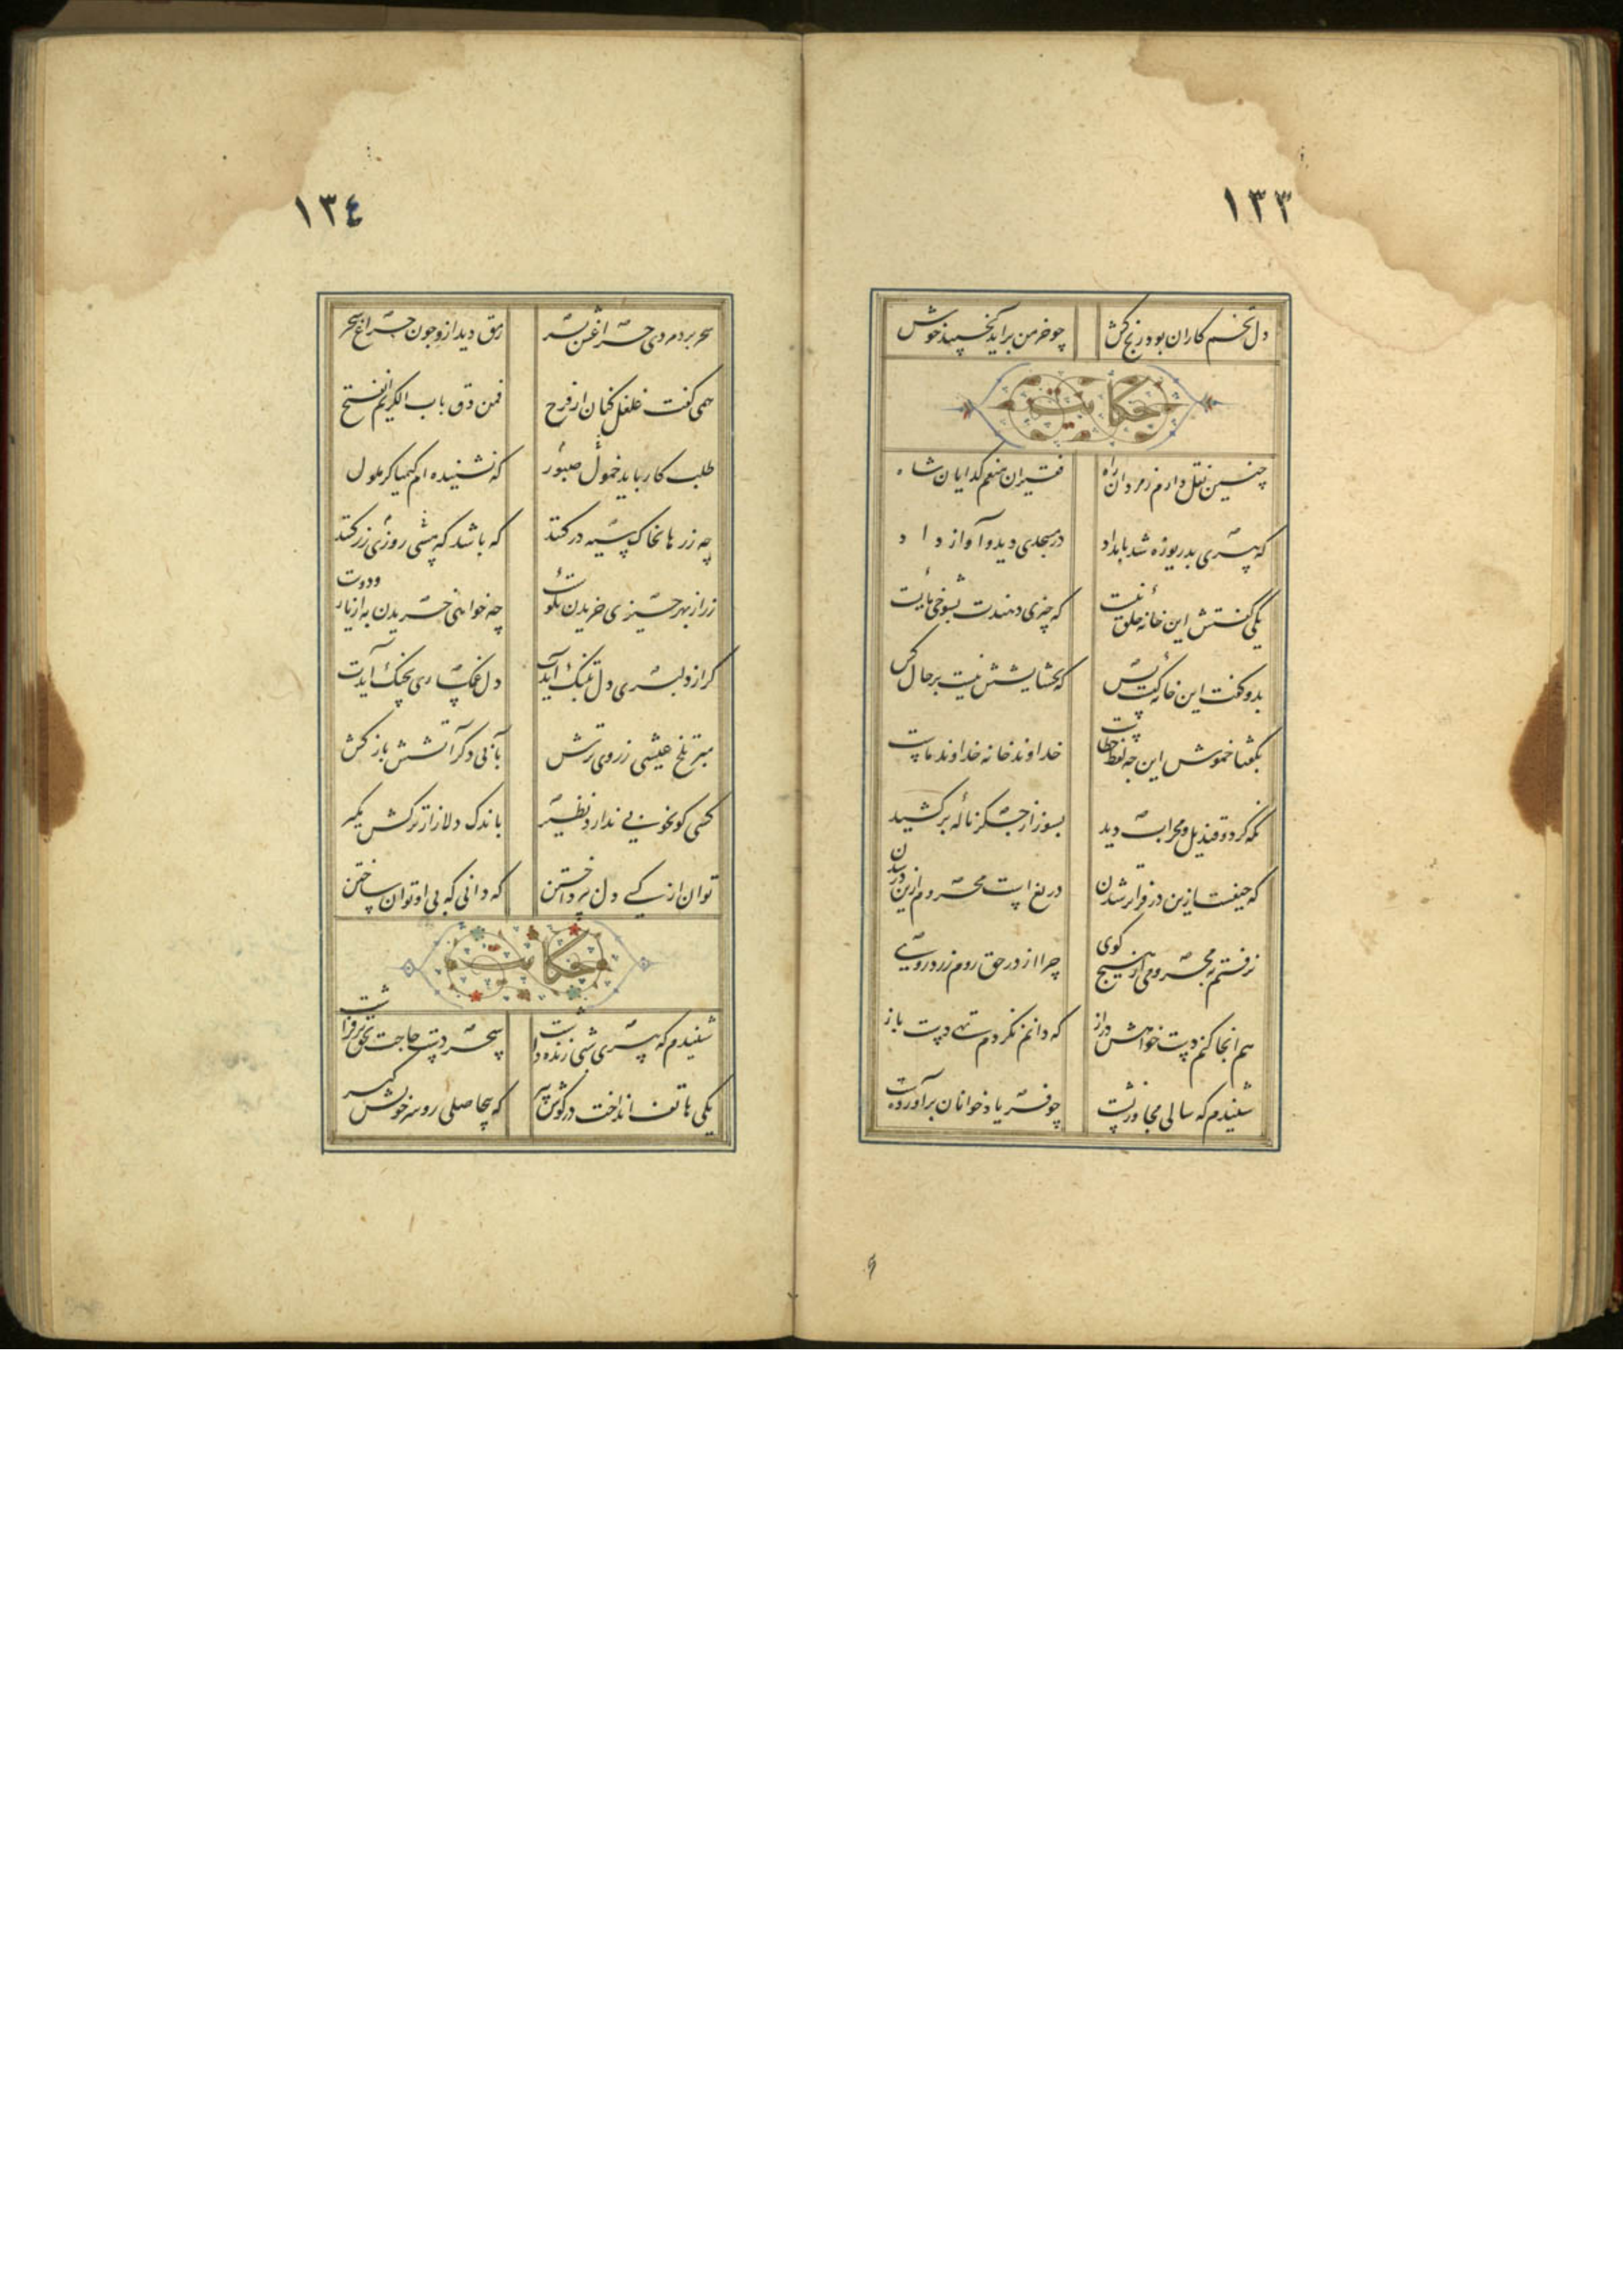 ١٣٣
دل تخم کاران بود رنج کش چو خرمن برآید بخسپند خوش
حکایت
چنین نقل دارم ز مردان راه فقیران منعم گدایان شاه
که پیری بدریوزه شد بامداد در مسجدی دید و آواز داد
یکی گفتش این خانه خلق نیست که چیزی دهندت بشوخی مایست
بدو گفت این خانه کیست پس که بخشایشش نیست بر حال کس
بگفتا خموش این چه لفظ خطاست خداوند خانه خداوند ماست
نگه کرد و قندیل و محراب دید بسوز از جگر ناله برکشید
که حیفست ازین در فراتر شدن دریغ است محروم ازین در شدن
نرفتم بمحرومی از هیچ کوی چرا از در حق روم زرد روی
هم انجا کنم دست خواهش دراز که دانم نکردم تهی دست باز
شنیدم که سالی مجاور نشست چو فریاد خوانان برآورد دست
١٣٤
سحر برد مردی چراغش بسر رمق دید ازو چون چراغ سحر
همی گفت غلغل کنان از فرح فمن دق باب الکریم انفتح
طلب کار باید خمول صبور که نشنیده ام کیمیاگر ملول
چه زرها بخاک سیه در کنند که باشد که مسی روزی زر کنند
زر از بهر چیزی خریدن نکوست چه خواهی خریدن به از یار و دوست
گر از دلبری دل بتنگ آیدت دل غمگساری بچنگ آیدت
مبر تلخ عیشی ز روی ترش بآبی دگر آتشش باز کش
کسی کو بخوبی ندارد نظیر باندک دلازار ترکش مگیر
توان از کسی دل بپرداختن که دانی که بی او توان ساختن
حکایت
شنیدم که پیری شبی زنده داشت سحر دست حاجت بحق برفراشت
یکی هاتف انداخت در گوش پیر که بیحاصلی رو سر خویش گیر